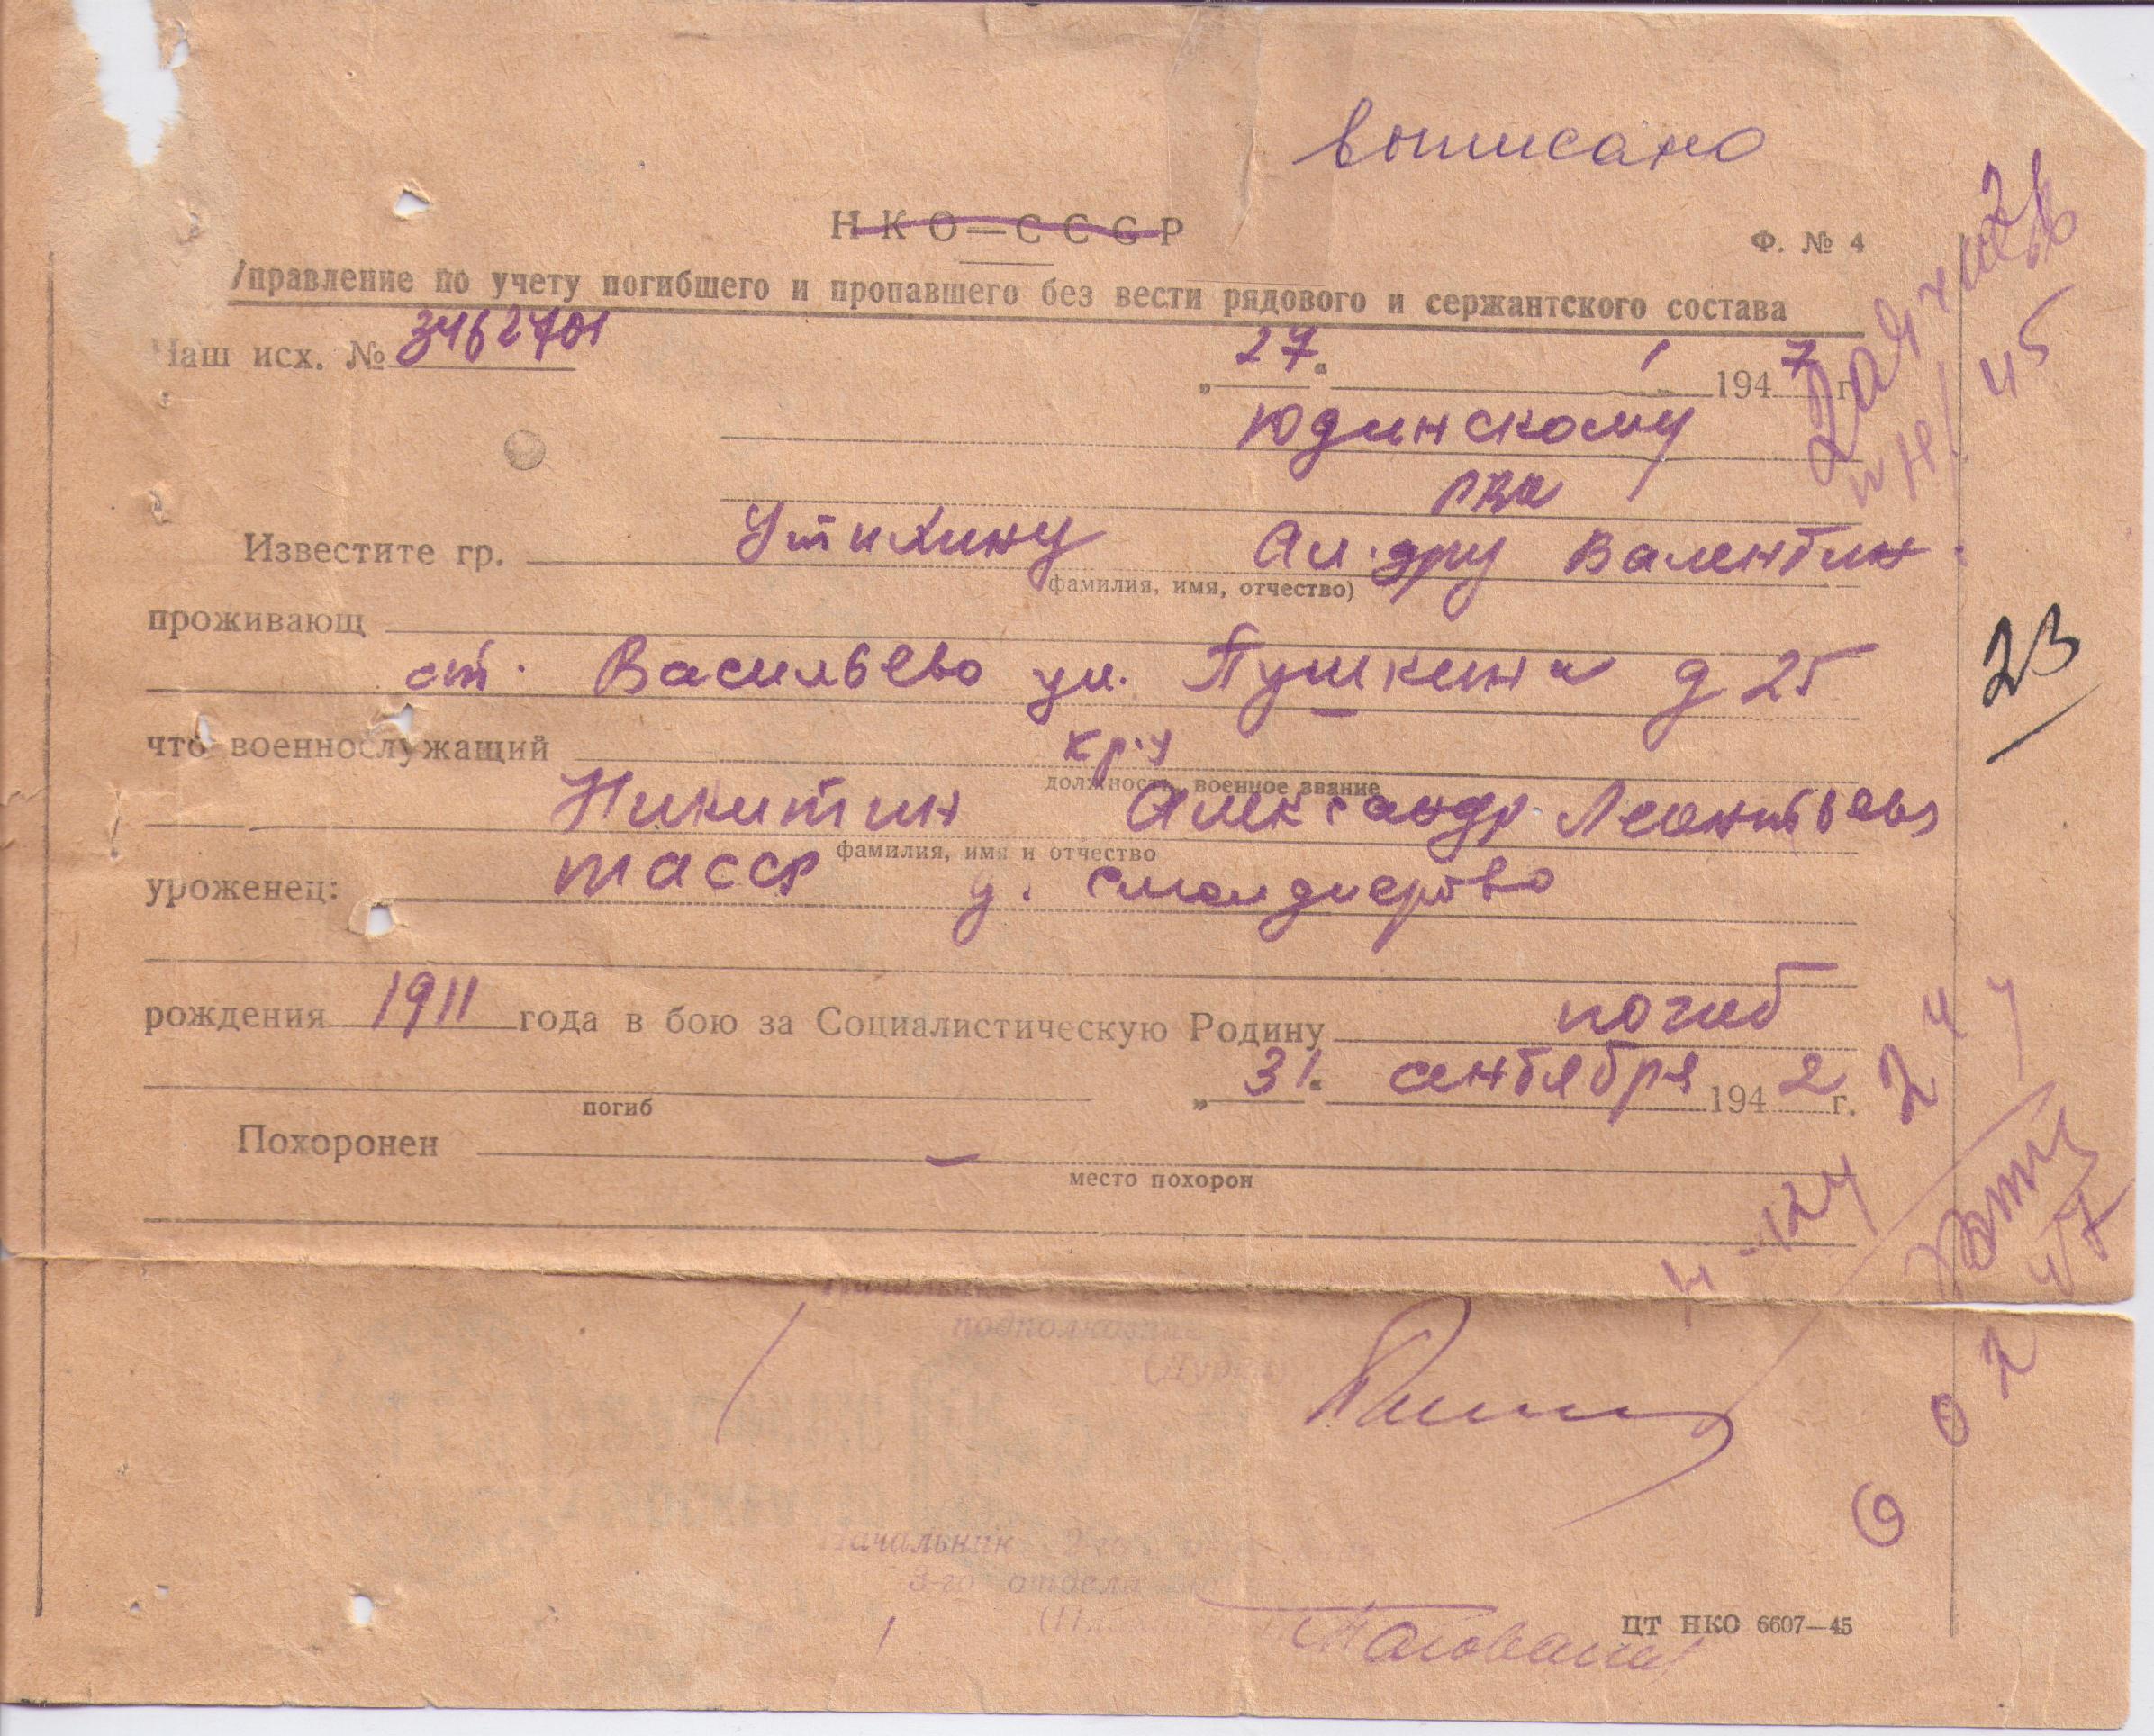 выписано
НКО—СССР
Ф. № 4
Управление по учету погибшего и пропавшего без вести рядового и сержантского состава
Наш исх. № 3462701
„27“ 1 1947 г.
Юдинскому
РВК
Известите гр. Утихину Ал-дру Валентин.
фамилия, имя, отчество)
проживающ
ст. Васильево ул. Пушкина д 25
23
что военнослужащий кр-ц
должность, военное звание
Никитин Александр Леонтьев
фамилия, имя и отчество
уроженец: ТАССР д.
рождения 1911 года в бою за Социалистическую Родину погиб
„31“ сентября 1942 г.
погиб
Похоронен —
место похорон
4-124
47
Начальник
подполковник
Начальник 2-го
3-го отдела
ЦТ НКО 6607—45